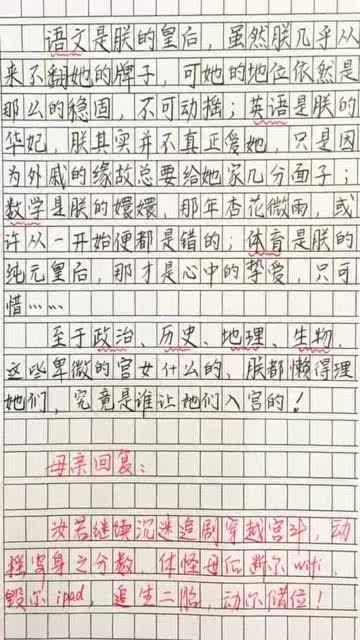 语文是朕的皇后，虽然朕几乎从
来不翻她的牌子，可她的地位依然是
那么的稳固，不可动摇；英语是朕的
华妃，朕其实并不真正爱她，只是因
为外戚的缘故总要给她家几分面子；
数学是朕的嬛嬛，那年杏花微雨，或
许从一开始便都是错的；体育是朕的
纯元皇后，那才是心中的挚爱，只可
惜……
至于政治、历史、地理、生物、
这些卑微的宫女什么的，朕都懒得理
她们，究竟是谁让她们入宫的！
母亲回复：
汝若继续沉迷追剧穿越宫斗，动
摇安身之分数，休怪母后断尔wifi，
毁尔ipad，追生二胎，动尔储位！